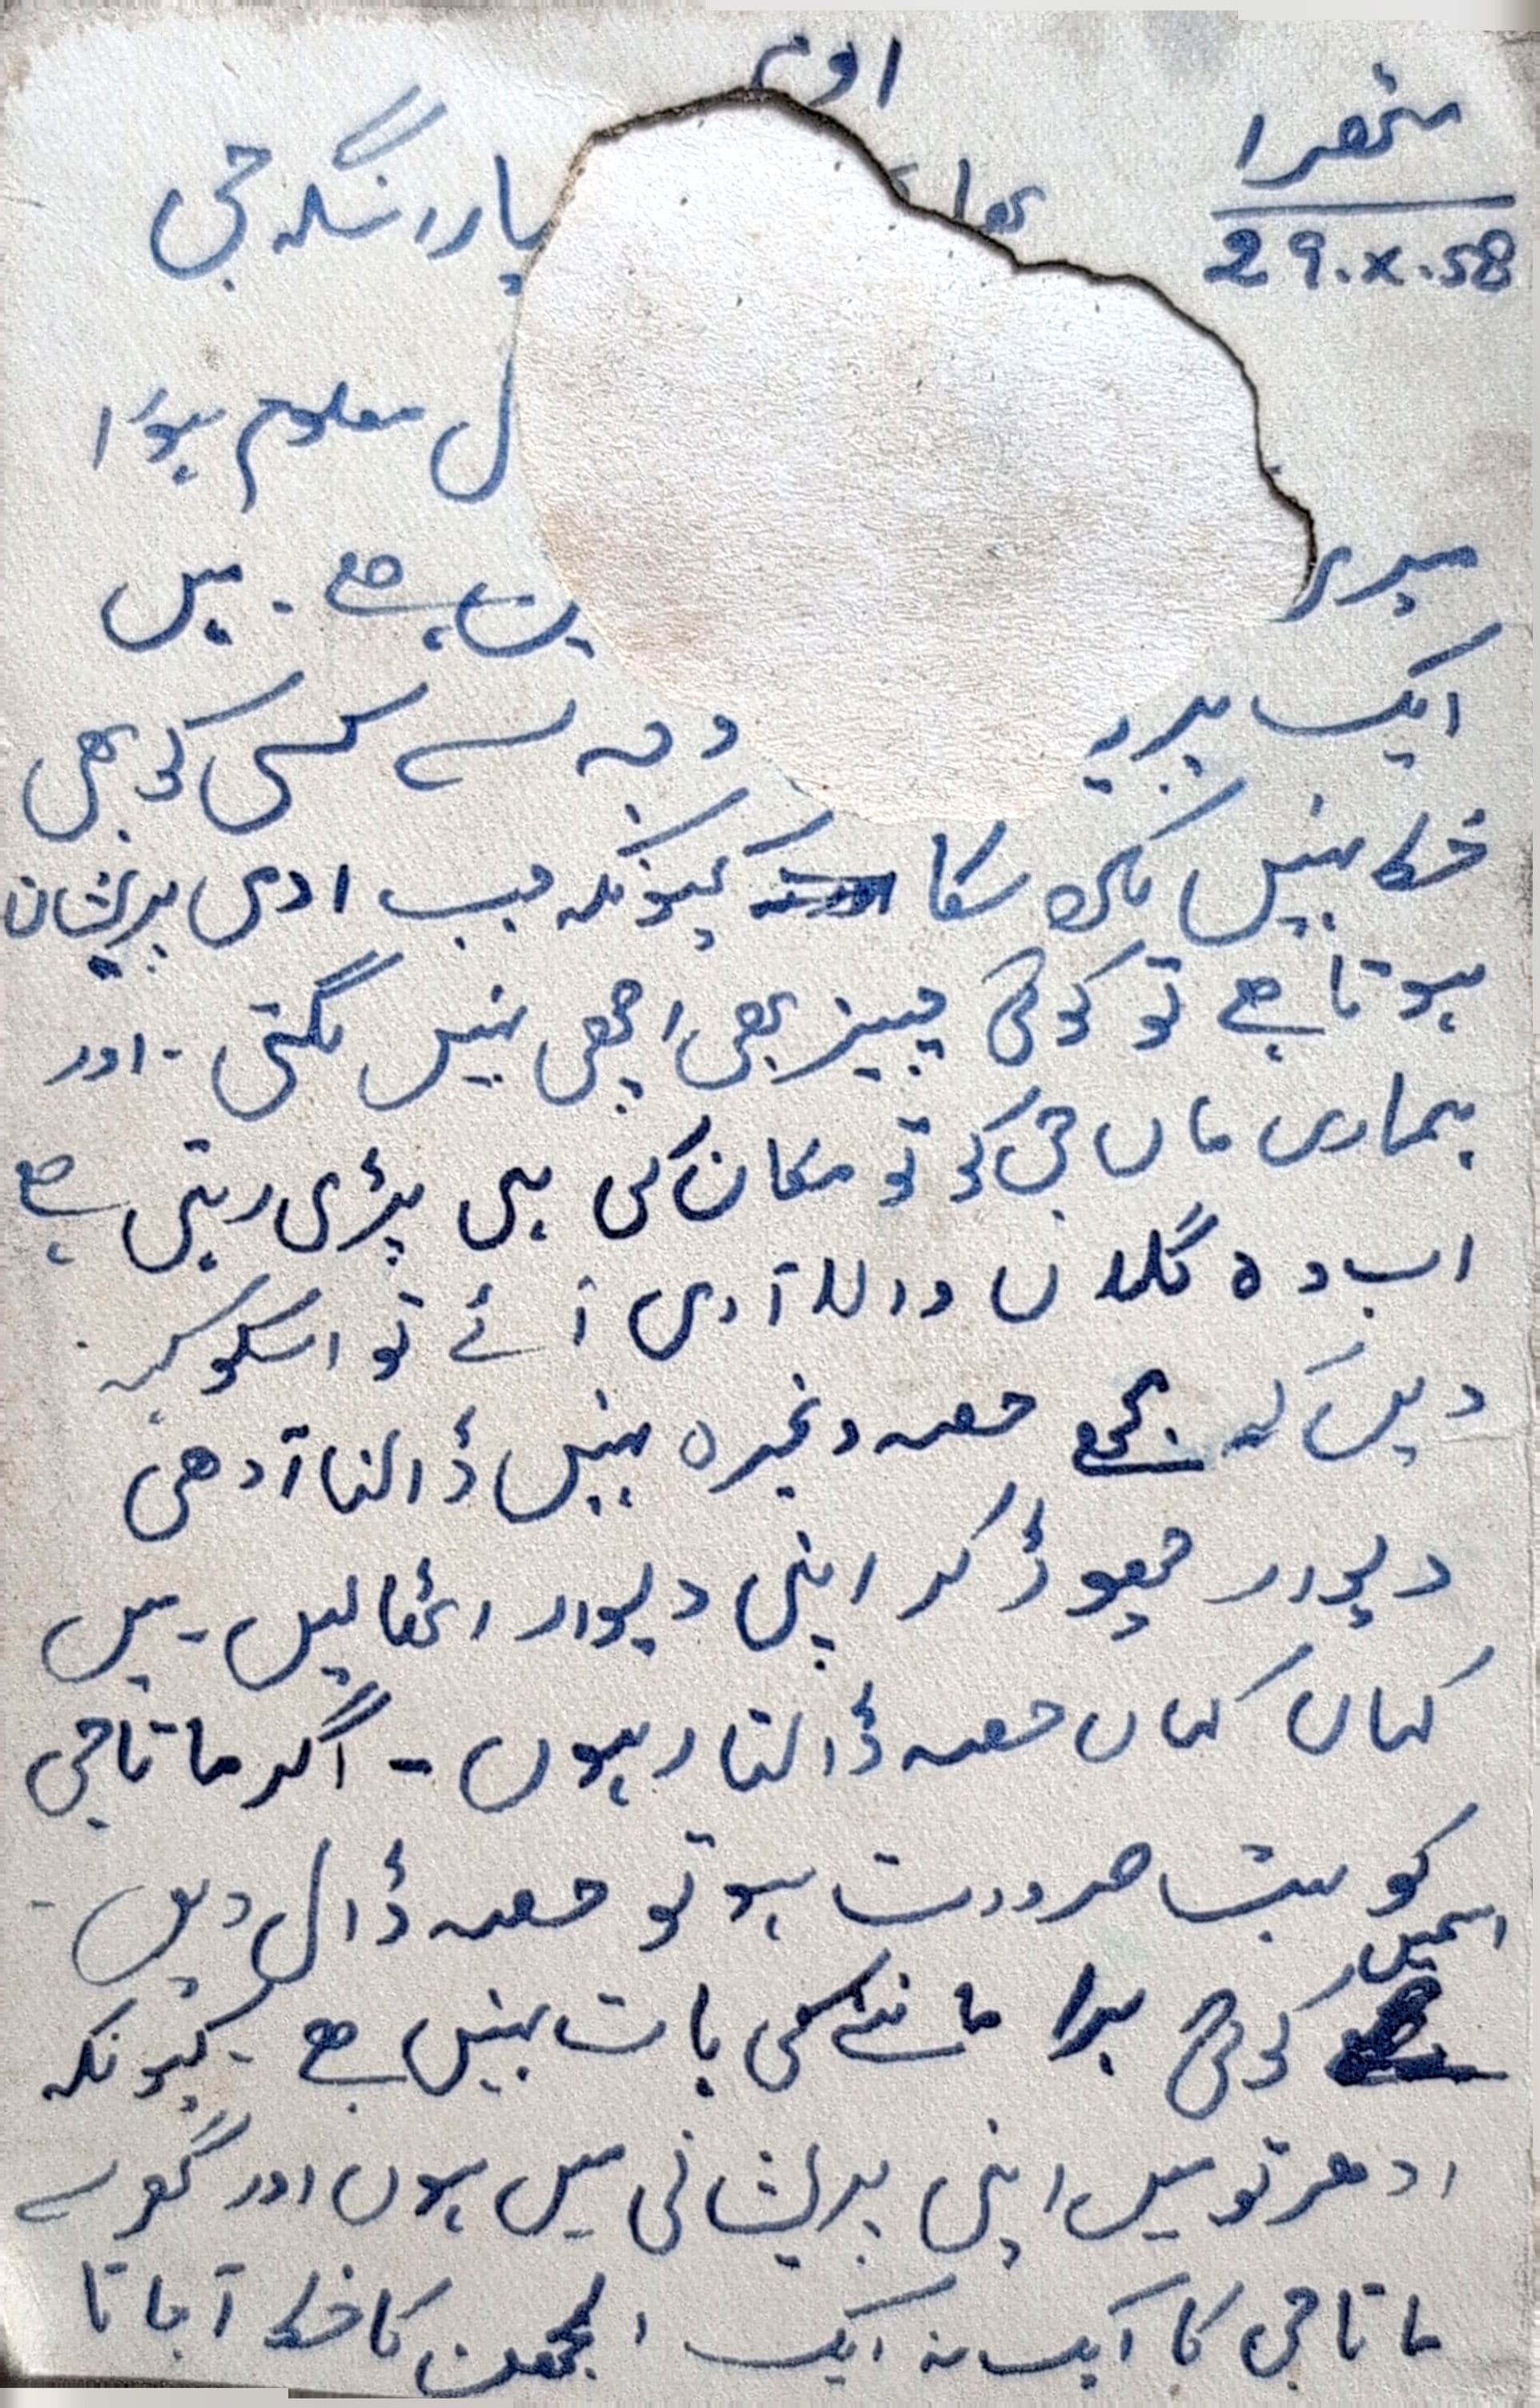 اوم
متھرا
29.x.58
پاررا سنگہ جی
ل معلوم ہؤا
میری ہے۔ میں
ایک وجہ سے کسی کو بھی
خط نہیں لکھ سکا کیونکہ جب ادمی پریشان
ہوتا ہے تو کوئی چیز بھی اچھی نہیں لگتی ۔ اور
ہماری ماں جی کو تو مکان کی ہی پڑی رہتی ہے
اب وہ والا آدمی آئے تو اسکو کہہ
دیں کہ مجھے حصہ وغیرہ نہیں ڈالنا آدھی
دیوار چھوڑ کر اپنی دیوار اٹھا لیں ۔ میں
کہاں کہاں حصہ ڈالتا رہوں ۔ اگر ماتا جی
کو بہت ضرورت ہو تو حصہ ڈال دیں ۔
اسمیں کوئی برا ماننے کی بات نہیں ہے ۔ کیونکہ
ادھر تو میں اپنی پریشانی میں ہوں اور گھر سے
ماتا جی کا ایک نہ ایک الجھن کا خط آ جاتا